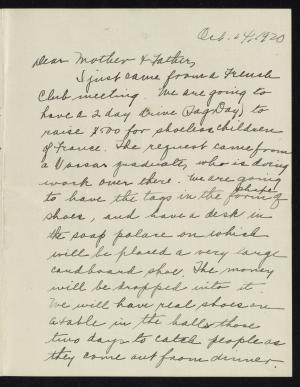 Oct. 24, 1920
Dear Mother & Father,
I just came from a French
Club meeting. We are going to
have a 2 day Drive (Tag Day) to
raise $500 for shoeless children
of France. The request came from
a Vassar graduate, who is doing
work over there. We are going
to have the tags in the form of
shoes, and have a desk in
the soap palace on which
will be placed a very large
cardboard shoe. The money
will be dropped into it.
We will have real shoes on
a table in the halls those
two days to catch people as
they come out from dinner.